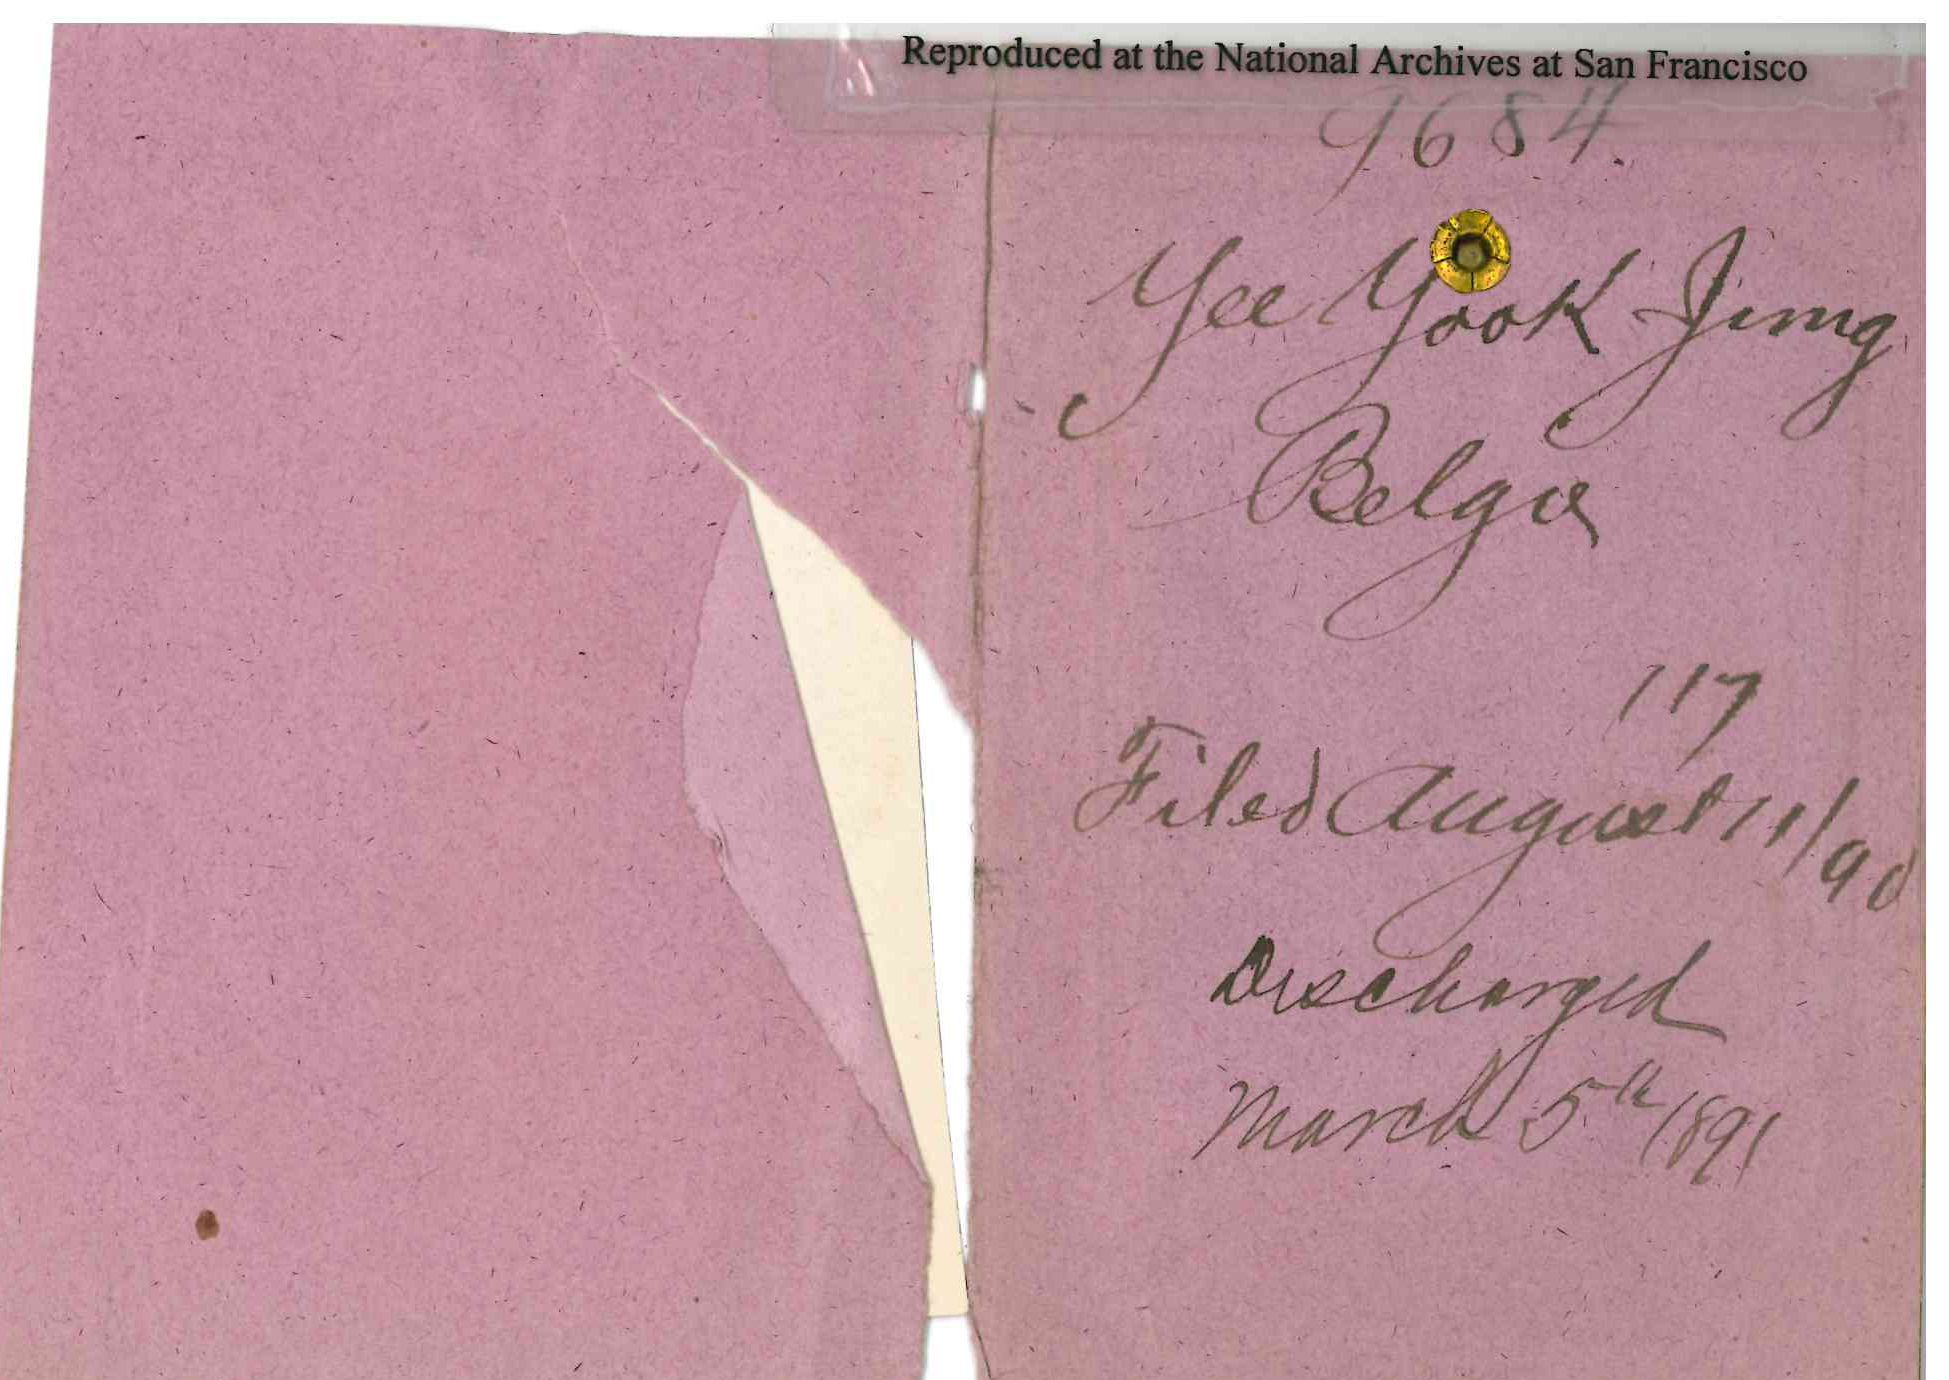 Reproduced at the National Archives at San Francisco
9684.
Yee Yook Jung
Belgic
117
Filed August 11/90
Discharged
March 5th 1891